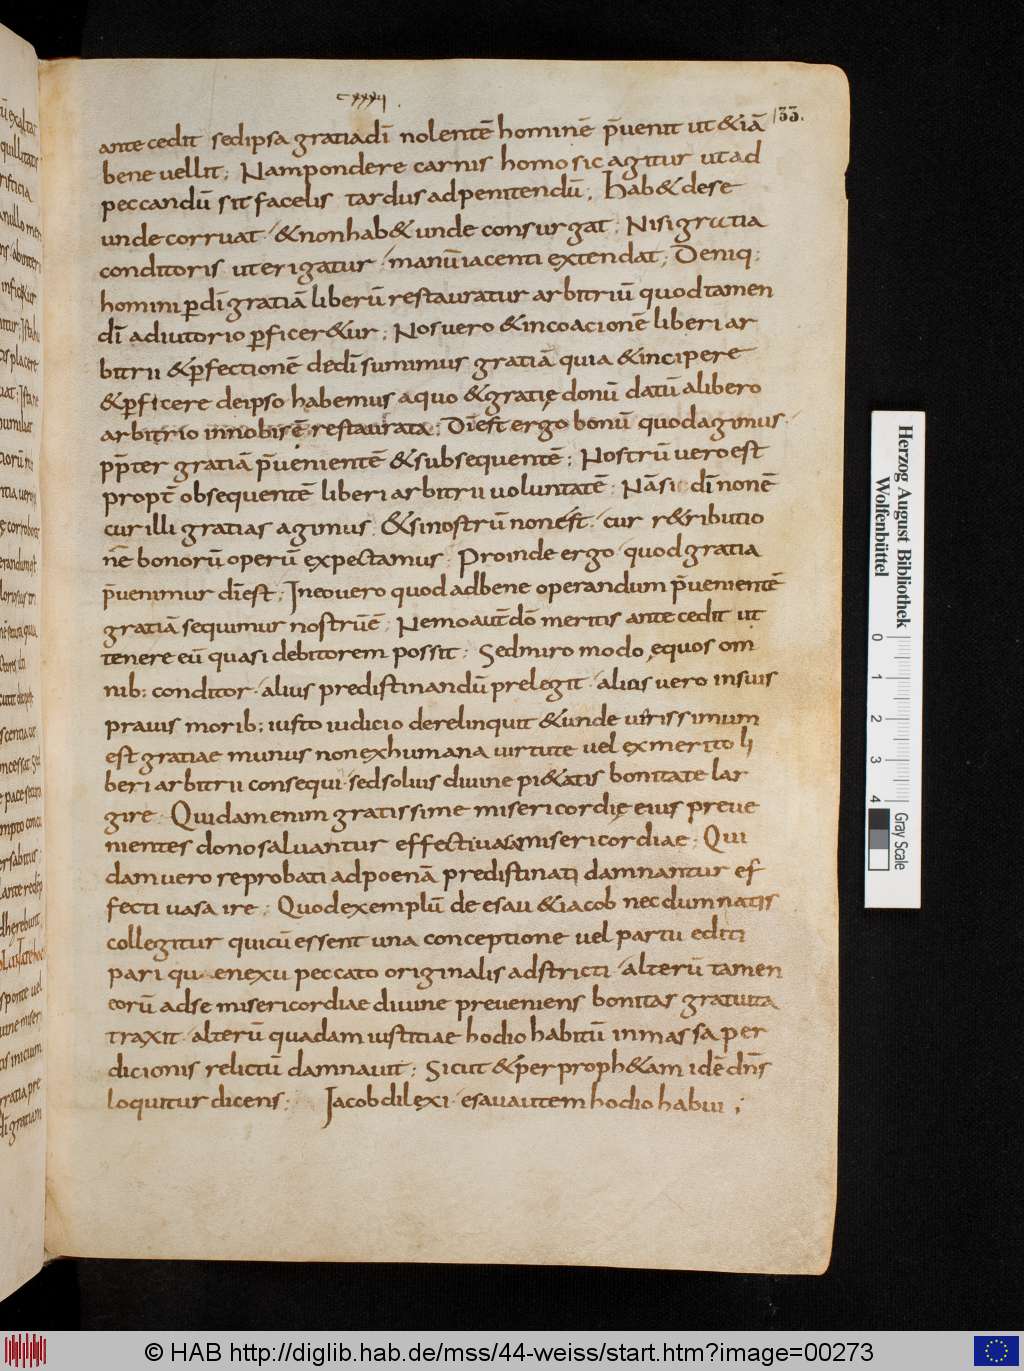 cxxxii .
133.
ante cedit sed ipsa gratia dī nolentē hominē p̄uenit ut & iā
bene uellit ; Nam pondere carnis homo sic agitur ut ad
peccandū sit facelis tardus ad penitendū ; Hab& de se
unde corruat · & non hab& unde consurgat ; Nisi gratia
conditoris ut erigatur · manū iacenti extendat ; Deniq;
homini p̲ dī gratiā liberū restauratur arbitriū quod tamen
dī adiutorio p̲ficer&ur ; Nos uero & incoacionē liberi ar
bitrii & p̲fectionē de dī sumimus gratiā quia & incipere
& p̲ficere de ipso habemus a quo & gratię donū datū a libero
arbitrio in nobis ē restaurata ; Dī est ergo bonū quod agimus ·
pp̄ter gratiā p̄uenientē & subsequentē ; Nostrū uero est
propt̄ obsequentē liberi arbitrii uoluntatē ; Nā si dī non ē
cur illi gratias agimus ; & si nostrū non est · cur r&ributio
nē bonorū operū expectamus ; Proinde ergo quod gratia
p̄uenimur dī est ; In eo uero quod ad bene operandum p̄uenientē
gratiā sequimur nostrū ē ; Nemo aut̄ dō meritis ante cedit ut
tenere eū quasi debitorem possit ; Sed miro modo ęquos om̄
nib; conditor · alius predistinandū prelegit · aliis uero in suis
prauis morib; iusto iudicio derelinquit & unde uirissimum
est gratiae munus non ex humana uirtute uel ex merito li
beri arbitrii consequi · sed solius diuine pi&atis bonitate lar
gire · Quidam enim gratissime misericordię eius preue
nientes dono saluantur effecti uasa misericordiae ; Qui
dam uero reprobati ad poenā predistinati damnantur ef
fecti uasa ire ; Quod exemplū de esau & iacob necdum natis
collegitur qui cū essent una conceptione uel partu editi
pari qu enexu peccato originalis adstricti · alterū tamen
eorū ad se misericordiae diuine preueniens bonitas gratuita
traxit · alterū quadam iustitiae hodio habitū in massa per
dicionis relictū damnauit ; Sicut & per proph&am idē dn̄s
loquitur dicens ; Iacob dilexi · esau autem hodio habui ;
Herzog August Bibliothek
Wolfenbüttel
0 1 2 3 4
Gray Scale
© HAB http://diglib.hab.de/mss/44-weiss/start.htm?image=00273